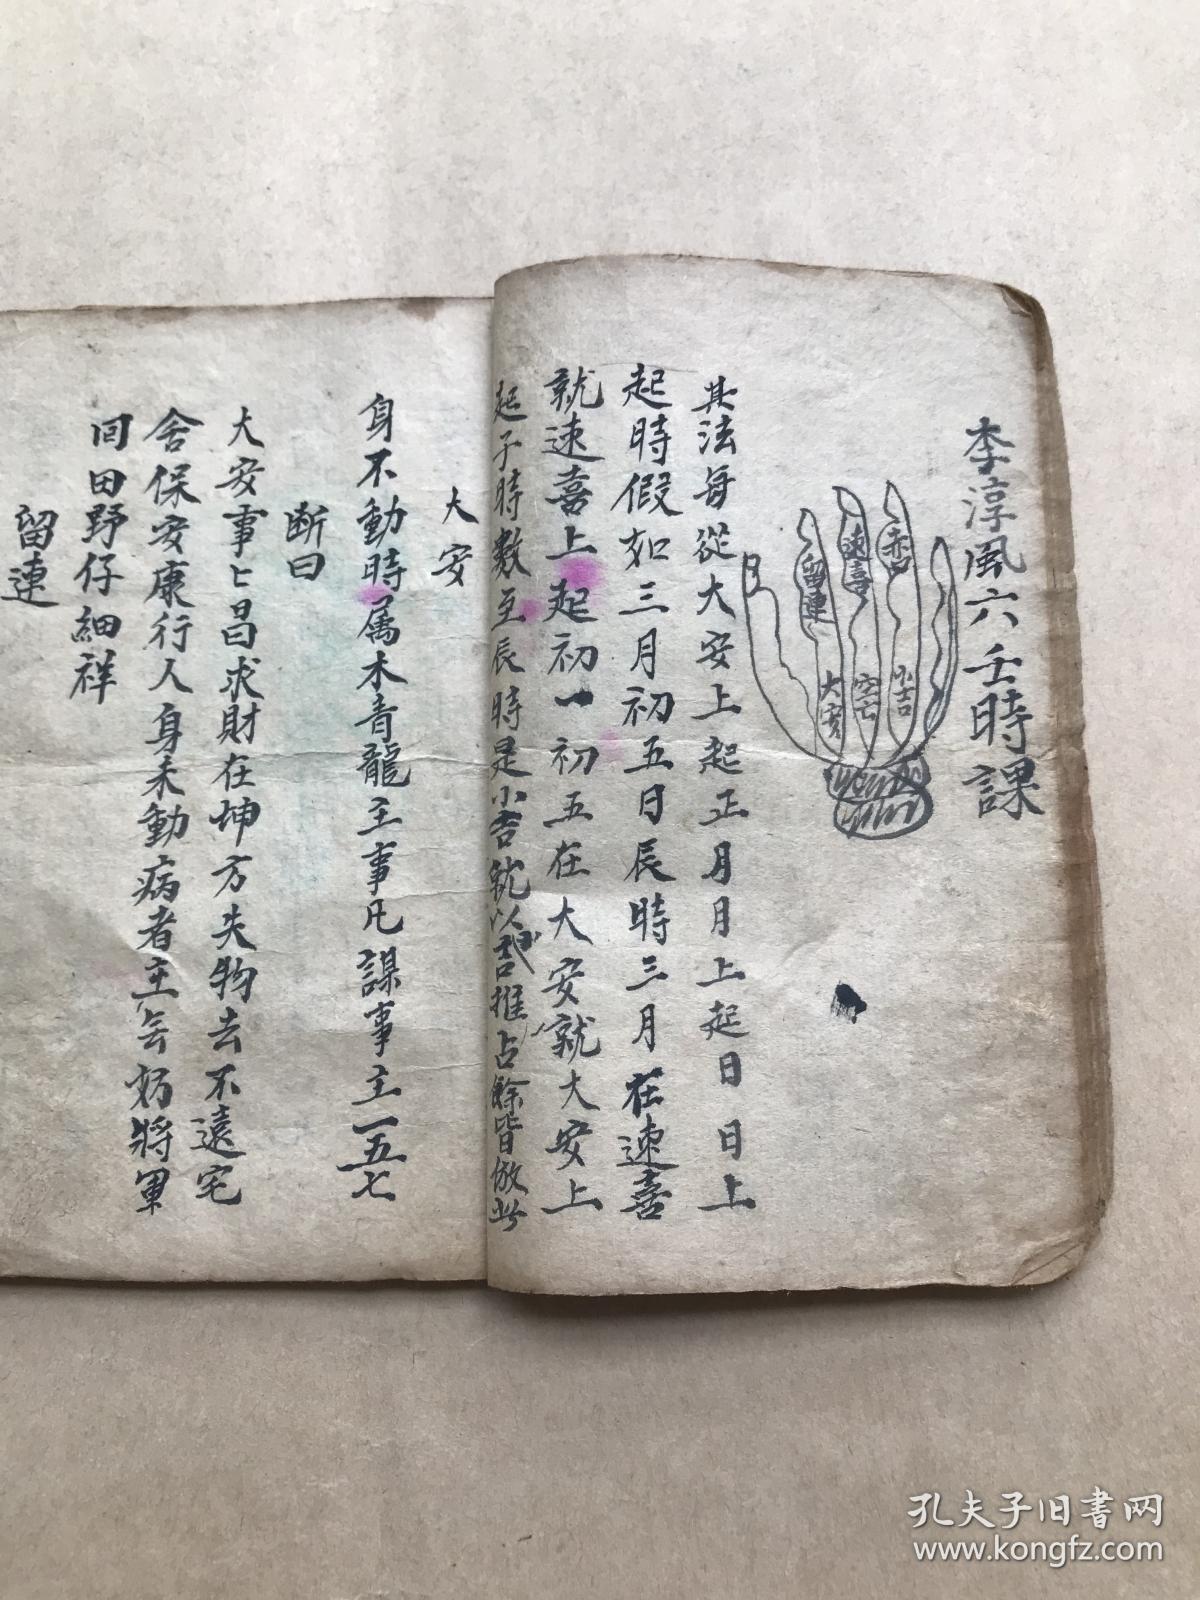 李淳風六壬時課
赤口
速喜
留連
小吉
空亡
大安
其法每從大安上起正月月上起日日上
起時假如三月初五日辰時三月在速喜
就速喜上起初一初五在大安就大安上
起子時数至辰時是小吉就以吉推占餘皆倣此
大安
身不動時属木青龍主事凡謀事主一五七
断曰
大安事匕昌求財在坤方失物去不遠宅
舍保安康行人身未動病者主将軍
回田野仔細祥
留連
孔夫子旧书网
www.kongfz.com